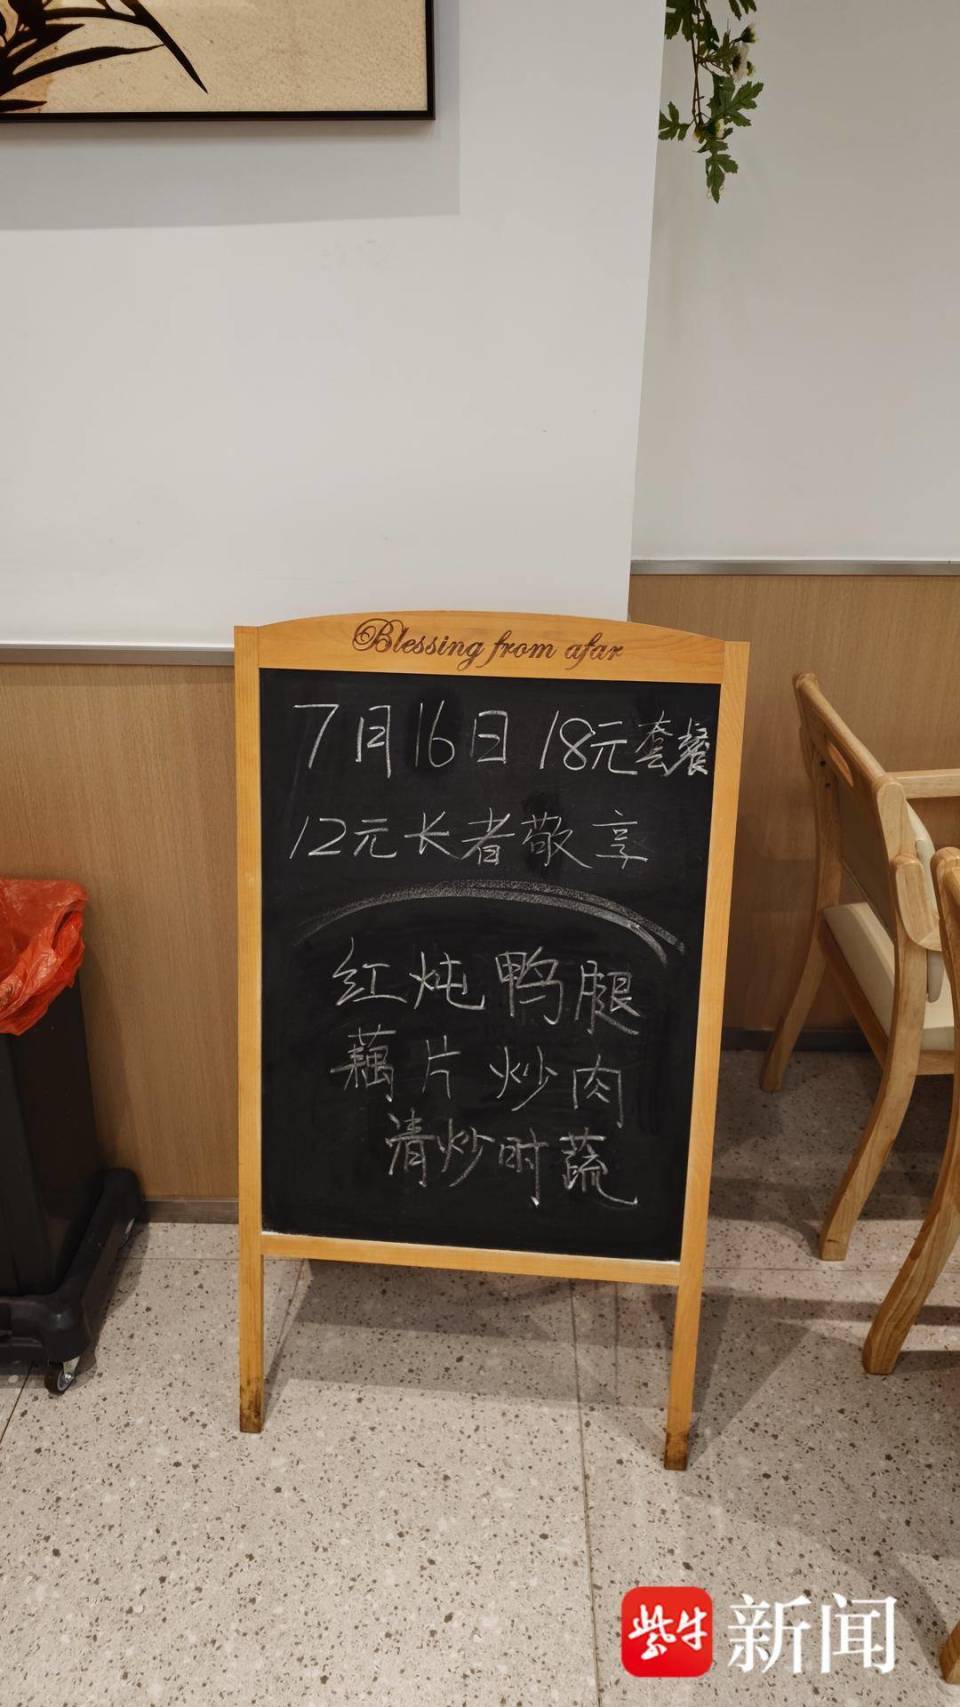 Blessing from afar
7月16日 18元套餐
12元长者敬享
红炖鸭腿
藕片炒肉
清炒时蔬
紫牛新闻